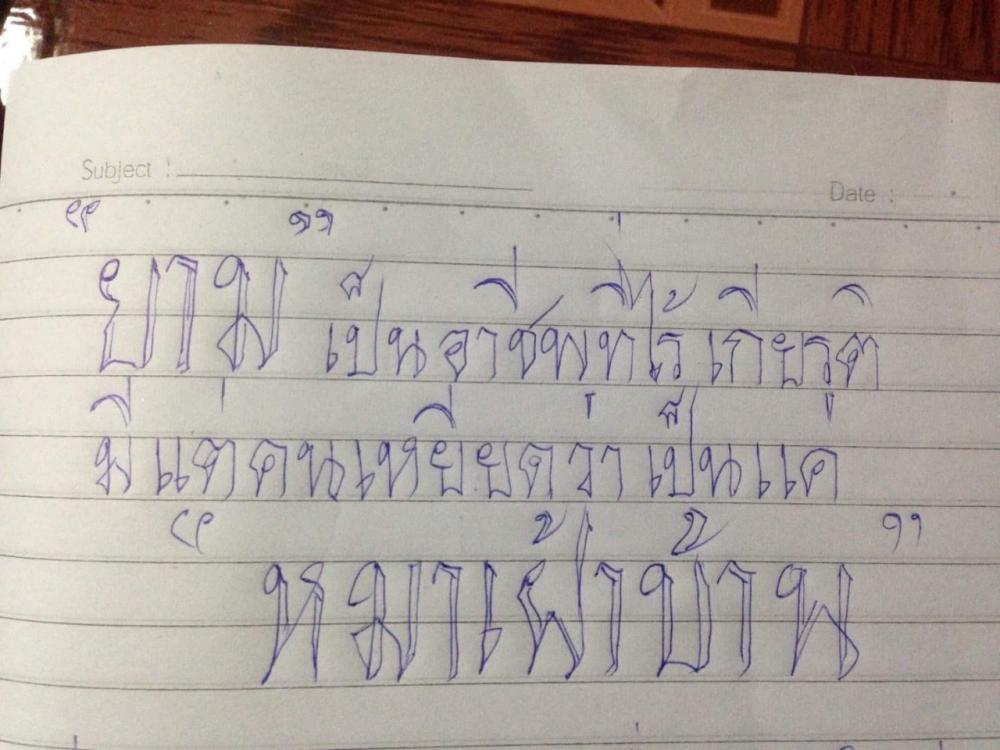 Subject :
Date :
“ยาม” เป็นอาชีพที่ไร้เกียรติ
มีแต่คนเหยียดว่าเป็นแค่
“หมาเฝ้าบ้าน”